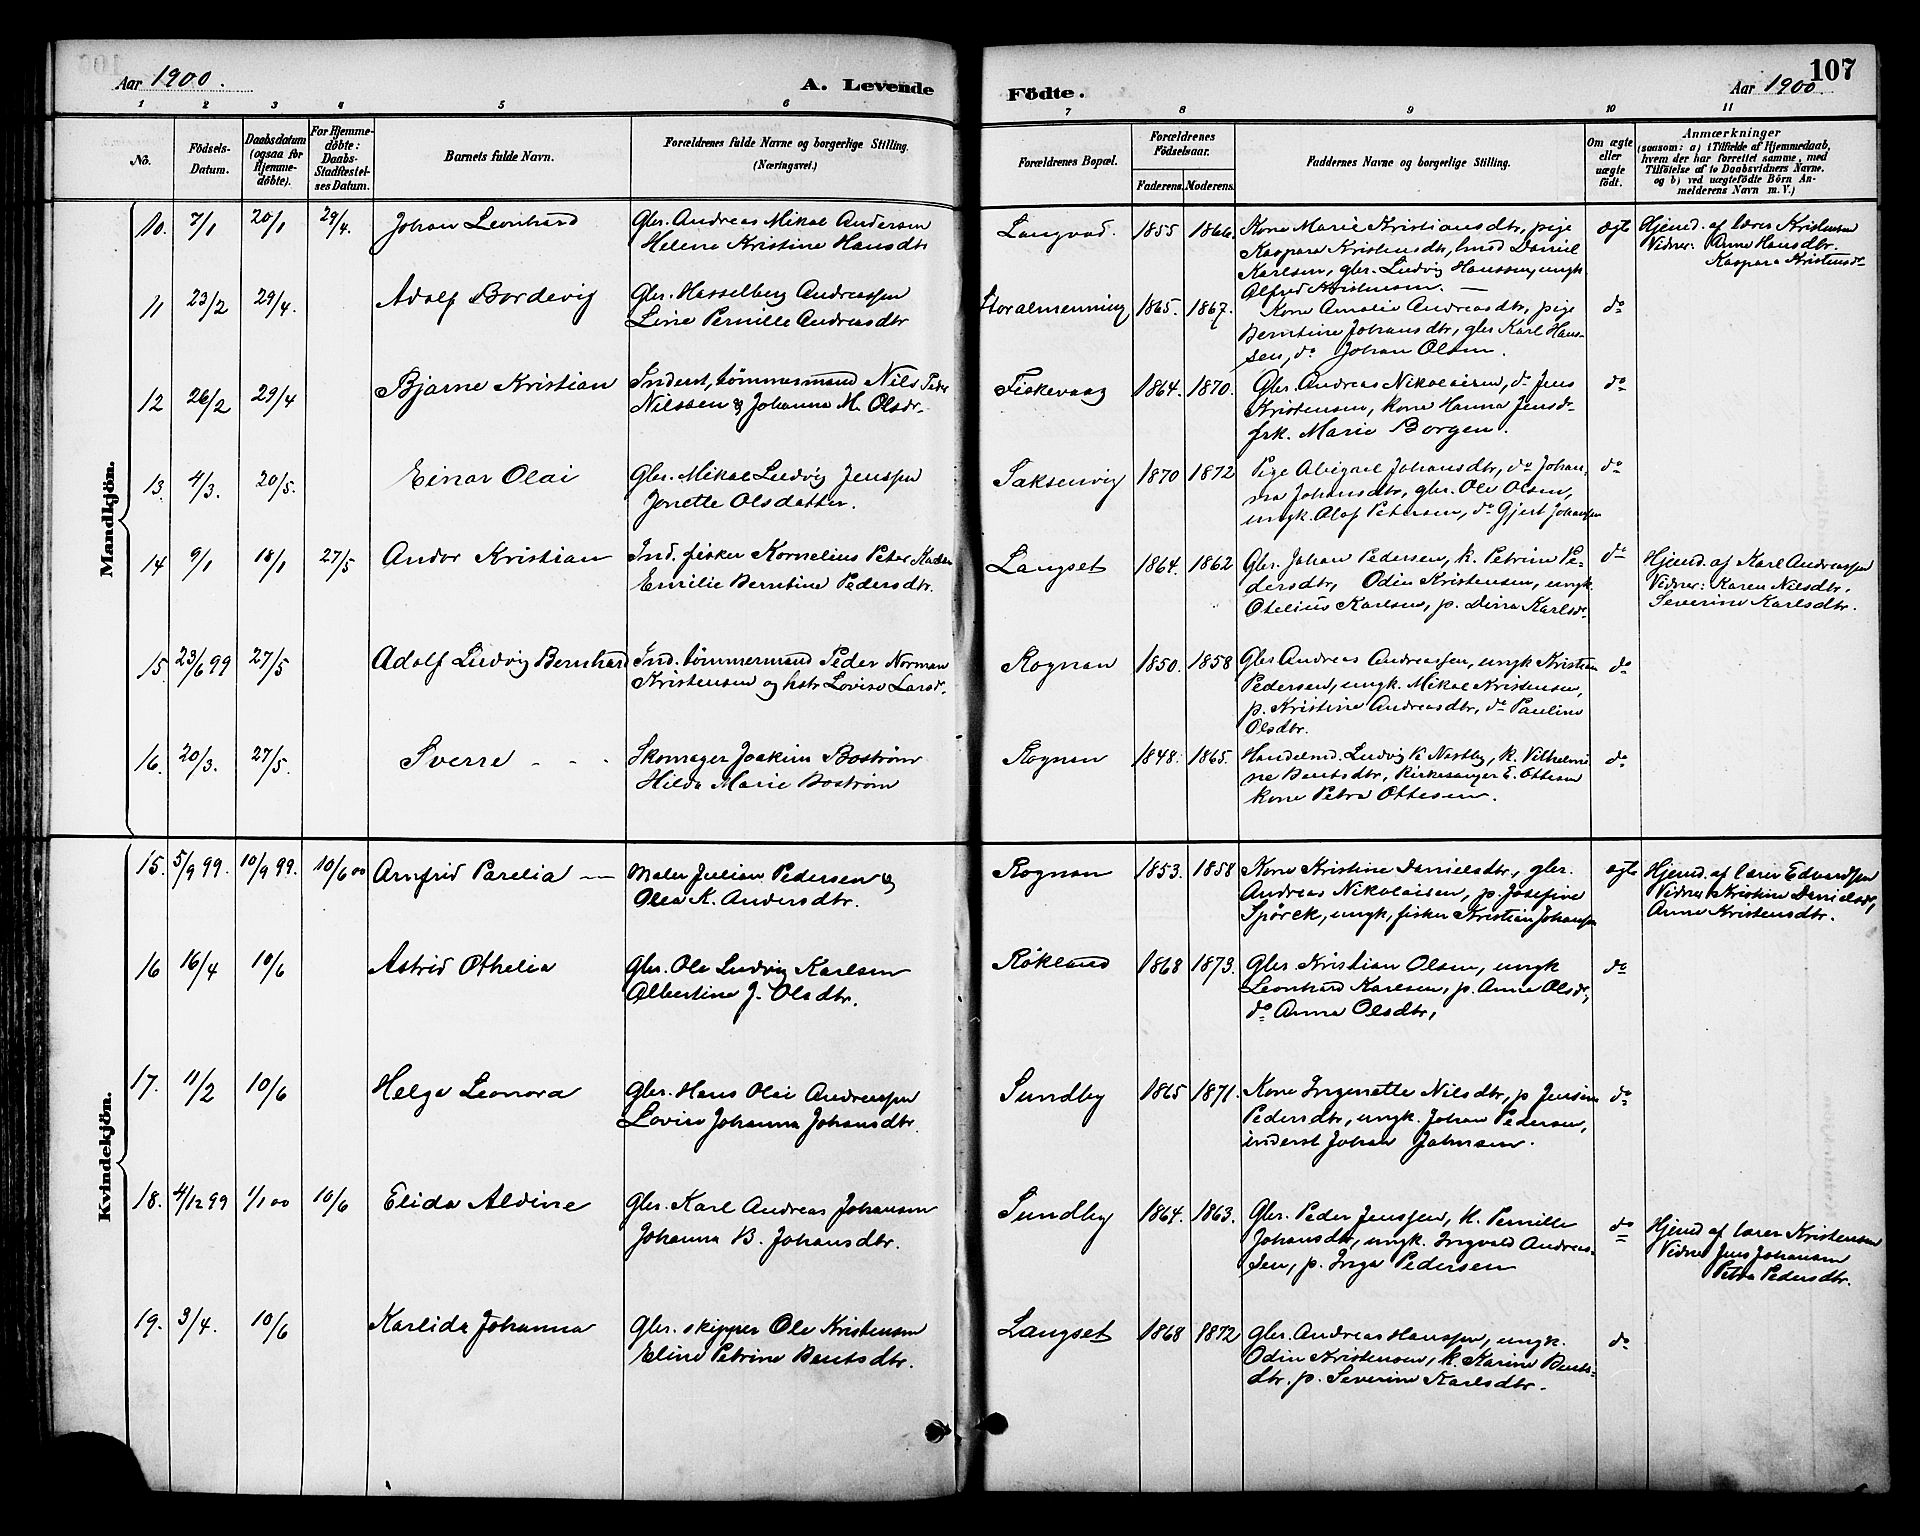 107
Aar 1900.
A. Levende
Födte.
Aar 1900.
1 2 3 4 5 6 7 8 9 10 11
No.
Födsels-Datum.
Daabsdatum (ogsaa for Hjemme-döbte).
For Hjemme-döbte: Daabs-Stadfæstel-ses Datum.
Barnets fulde Navn.
Forældrenes fulde Navne og borgerlige Stilling.
(Næringsvei.)
Forældrenes Bopæl.
Forældrenes Födselsaar.
Faderens. Moderens.
Faddernes Navne og borgerlige Stilling.
Om ægte eller uægte födt.
Anmærkninger
(saasom: a) i Tilfælde af Hjemmedaab, hvem der har forrettet samme, med Tilföielse af to Daabsvidners Navne, og b) ved uægtefödte Börn An-melderens Navn m. V.)
Mandkjön.
10. 7/1 20/1 29/4. Johan Leonhard Gbr. Andreas Mikal Andersen Langvad. 1855 1866. Kone Marie Kristiansdtr, pige ægte Hjemd. af lærer Kristensen
Helene Kristine Hansdtr Kaspara Kristensdtr, hmd Daniel Vidner: Anne Hansdtr.
Karlsen, gbr. Ludvig Hanssen, ungk. Kaspara Kristensdr
Alfred Kristensen. —
11 23/2 29/4. Adolf Bordevig Gbr. Hasselberg Andreassen Storalmenning 1865. 1867. Kone Amalie Andreasdtr, pige do
Line Pernille Andreasdtr Berntine Johansdtr, gbr Karl Hans-
sen, do Johan Olsen.
12 26/2 29/4 Bjarne Kristian Inderst, tømmermand Nils Peder Fiskevaag 1864. 1870. Gbr. Andreas Nikolaisen, do Jens do
Nilssen & Johanna M. Olsdr. Kristensen, kone Hanna Jensdr
frk. Marie Borgen.
13. 4/3. 20/5. Einar Olai Gbr. Mikal Ludvig Jenssen Saksenvig 1870 1872 Pige Abigael Johansdtr, do Johan- do
Jonette Olsdatter. na Johansdtr, gbr. Ole Olsen,
ungk. Olaf Petersen, do Gjert Johansen
14 9/1 18/1 27/5 Andor Kristian Ind. fisker Kornelius Peter Langset 1864. 1862 Gbr. Johan Pedersen, k. Petrine Pe- do Hjemd. af Karl Andreassen
Emilie Berntine Pedersdtr. dersdtr, Odin Kristensen, ungk. Vidner: Karen Nilsdtr.
Otelius Karlsen, p. Dina Karlsdr. Severine Karlsdtr.
15. 23/6 99 27/5 Adolf Ludvig Bernhard Ind. tømmermand Peder Norman Rognan 1850. 1858 Gbr Andreas Andreassen, ungk Kristian do
Kristensen og hstr Lovise Larsdr. Pedersen, ungk. Mikal Kristensen,
p. Kristine Andreasdtr, do Pauline
Olsdtr.
16. 20/3. 27/5. Sverre - - - Skomager Joakim Bostrøm Rognan 1848. 1865. Handelsmd. Ludvig K. Nestby, k. Vilhelmi- do
Hilda Marie Bostrøm ne Bentsdtr, kirkesanger E. Ottesen
kone Petra Ottesen.
Kvindekjön.
15. 5/9 99. 10/9 99. 10/6 00 Arnfrid Parelia — Maler Julian Pedersen & Rognan 1853. 1858 Kone Kristine Danielsdtr, gbr. ægte Hjemd. af lærer Edvardsen
Olea K. Andersdtr. Andreas Nikolaisen, p. Josefine Vidner Kristine Danielsdr,
Spörck, ungk, fisker Kristian Johansen Anne Kristensdtr.
16 16/4 10/6 Astrid Othelia Gbr. Ole Ludvig Karlsen Røkland 1868 1873. Gbr Kristian Olsen, ungk do
Albertine J. Olsdtr. Leonhard Karlsen, p. Anne Olsdr,
do Anna Olsdtr,
17. 11/2 10/6 Helga Leonora Gbr. Hans Olai Andreassen Sundby 1865 1871. Kone Ingenette Nilsdtr, p Jensine do
Lovise Johanna Johansdtr. Pedersdtr, ungk. Johan Pedersen,
inderst Johan Johnsen.
18. 4/12 99 1/1 00 10/6 Elida Aldine Gbr. Karl Andreas Johansen Sundby 1864. 1863. Gbr. Peder Jenssen, k. Pernille do Hjemd af lærer Kristensen
Johanna B. Johansdtr. Johansdtr, ungk. Ingvald Andreas- Vidner Jens Johansen
sen, p. Inga Pedersen Petra Pedersdtr.
19. 3/4. 10/6 Karlida Johanna Gbr. skipper Ole Kristensen Langset 1868 1872 Gbr. Andreas Hanssen, ungk. do
Eline Petrine Bentsdtr. Odin Kristensen, k. Karine Bents-
dtr. p. Severine Karlsdtr.